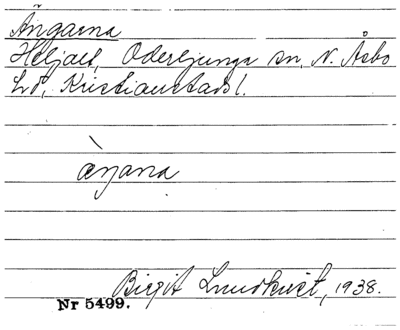 Ängarna
Heljalt, Oderljunga sn, N. Åsbo
hd, Kristianstads l.
àŋana
Birgit Lundkvist, 1938.
Nr 5499.